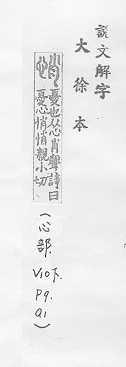 說文解字
大徐本
悄
憂也从心肖聲詩曰
憂心悄悄親小切
(心部. V10下. P9. a1)